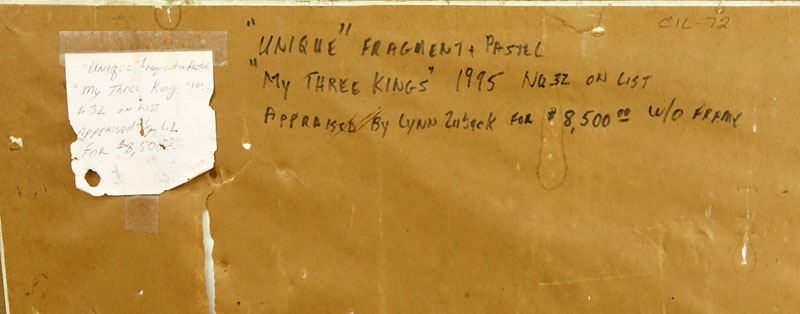 CIL-72.
"UNIQUE" FRAGMENT + PASTEL
"MY THREE KINGS" 1995 No 32 ON LIST
APPRAISED BY LYNN Zubeck FOR $8,500.00 W/O FRAME
"UNIQUE" Fragment + Pastel
"My Three Kings"
#32 ON LIST
Appraised by LZ
FOR $8,500